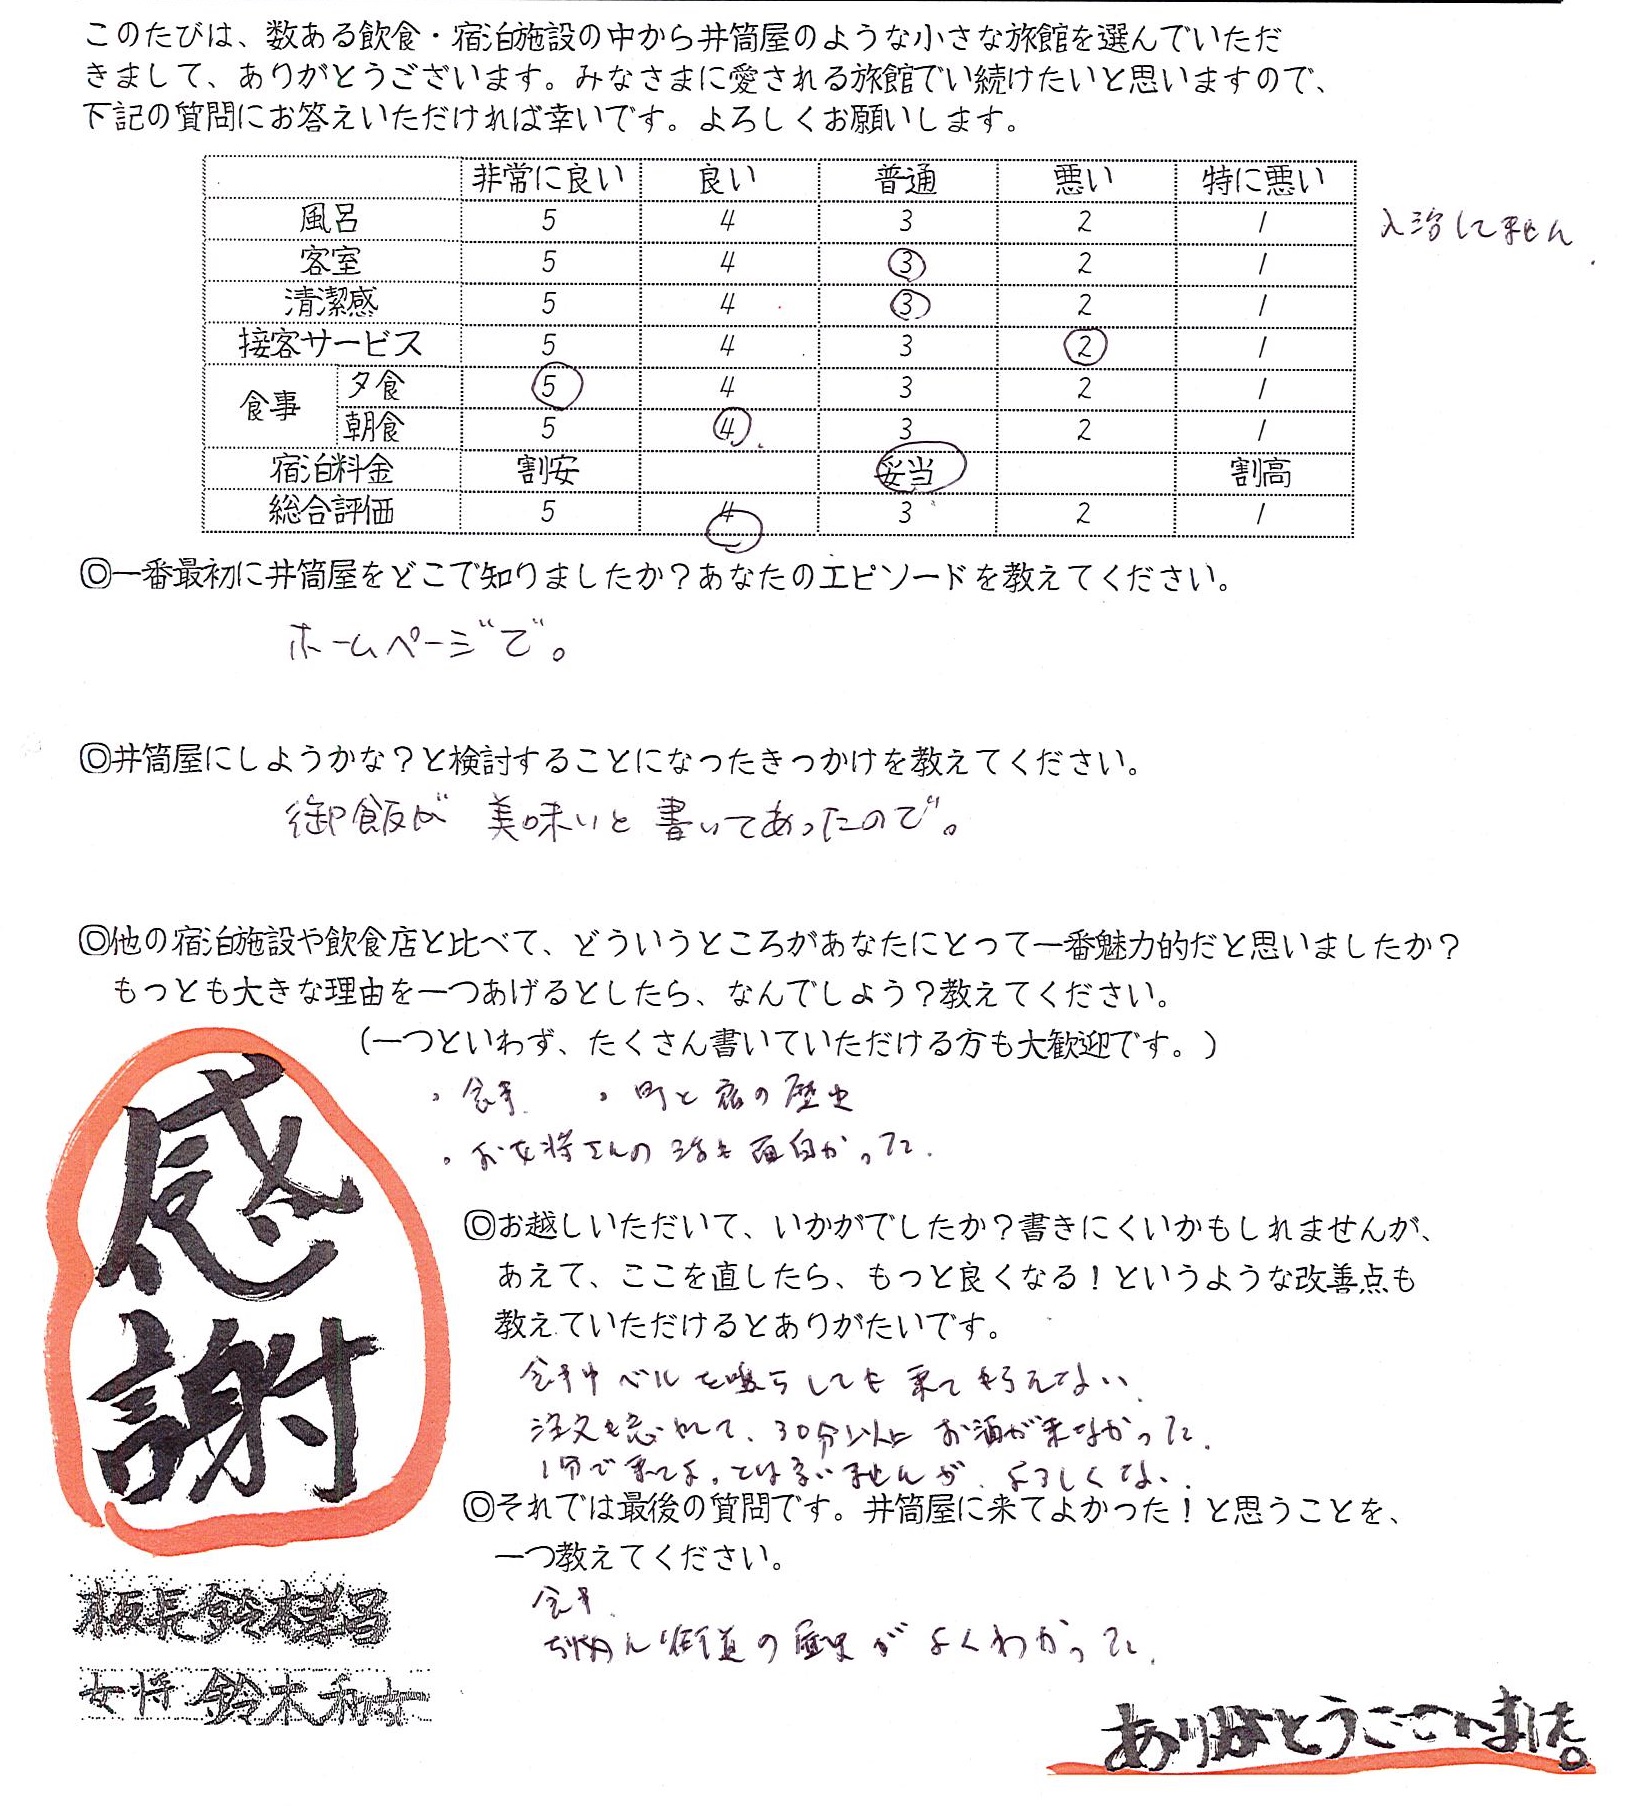 このたびは、数ある飲食・宿泊施設の中から井筒屋のような小さな旅館を選んでいただ
きまして、ありがとうございます。みなさまに愛される旅館でい続けたいと思いますので、
下記の質問にお答えいただければ幸いです。よろしくお願いします。
非常に良い 良い 普通 悪い 特に悪い
風呂 5 4 3 2 1 入浴してません
客室 5 4 3 2 1
清潔感 5 4 3 2 1
接客サービス 5 4 3 2 1
食事 夕食 5 4 3 2 1
朝食 5 4 3 2 1
宿泊料金 割安 妥当 割高
総合評価 5 4 3 2 1
◎一番最初に井筒屋をどこで知りましたか？あなたのエピソードを教えてください。
ホームページで。
◎井筒屋にしようかな？と検討することになったきっかけを教えてください。
御飯が美味いと書いてあったので。
◎他の宿泊施設や飲食店と比べて、どういうところがあなたにとって一番魅力的だと思いましたか？
もっとも大きな理由を一つあげるとしたら、なんでしょう？教えてください。
（一つといわず、たくさん書いていただける方も大歓迎です。）
・食事 ・町と宿の歴史
・お女将さんの話も面白かった.
◎お越しいただいて、いかがでしたか？書きにくいかもしれませんが、
あえて、ここを直したら、もっと良くなる！というような改善点も
教えていただけるとありがたいです。
食事中ベルを鳴らしても来て もらえない.
注文も忘れて、30分以上お酒が来なかった.
1分で来てよ。とは言いませんが、よろしくない.
◎それでは最後の質問です。井筒屋に来てよかった！と思うことを、
一つ教えてください。
食事.
街道の歴史がよくわかった.
感謝
板長 鈴木
女将 鈴木
ありがとうございました。